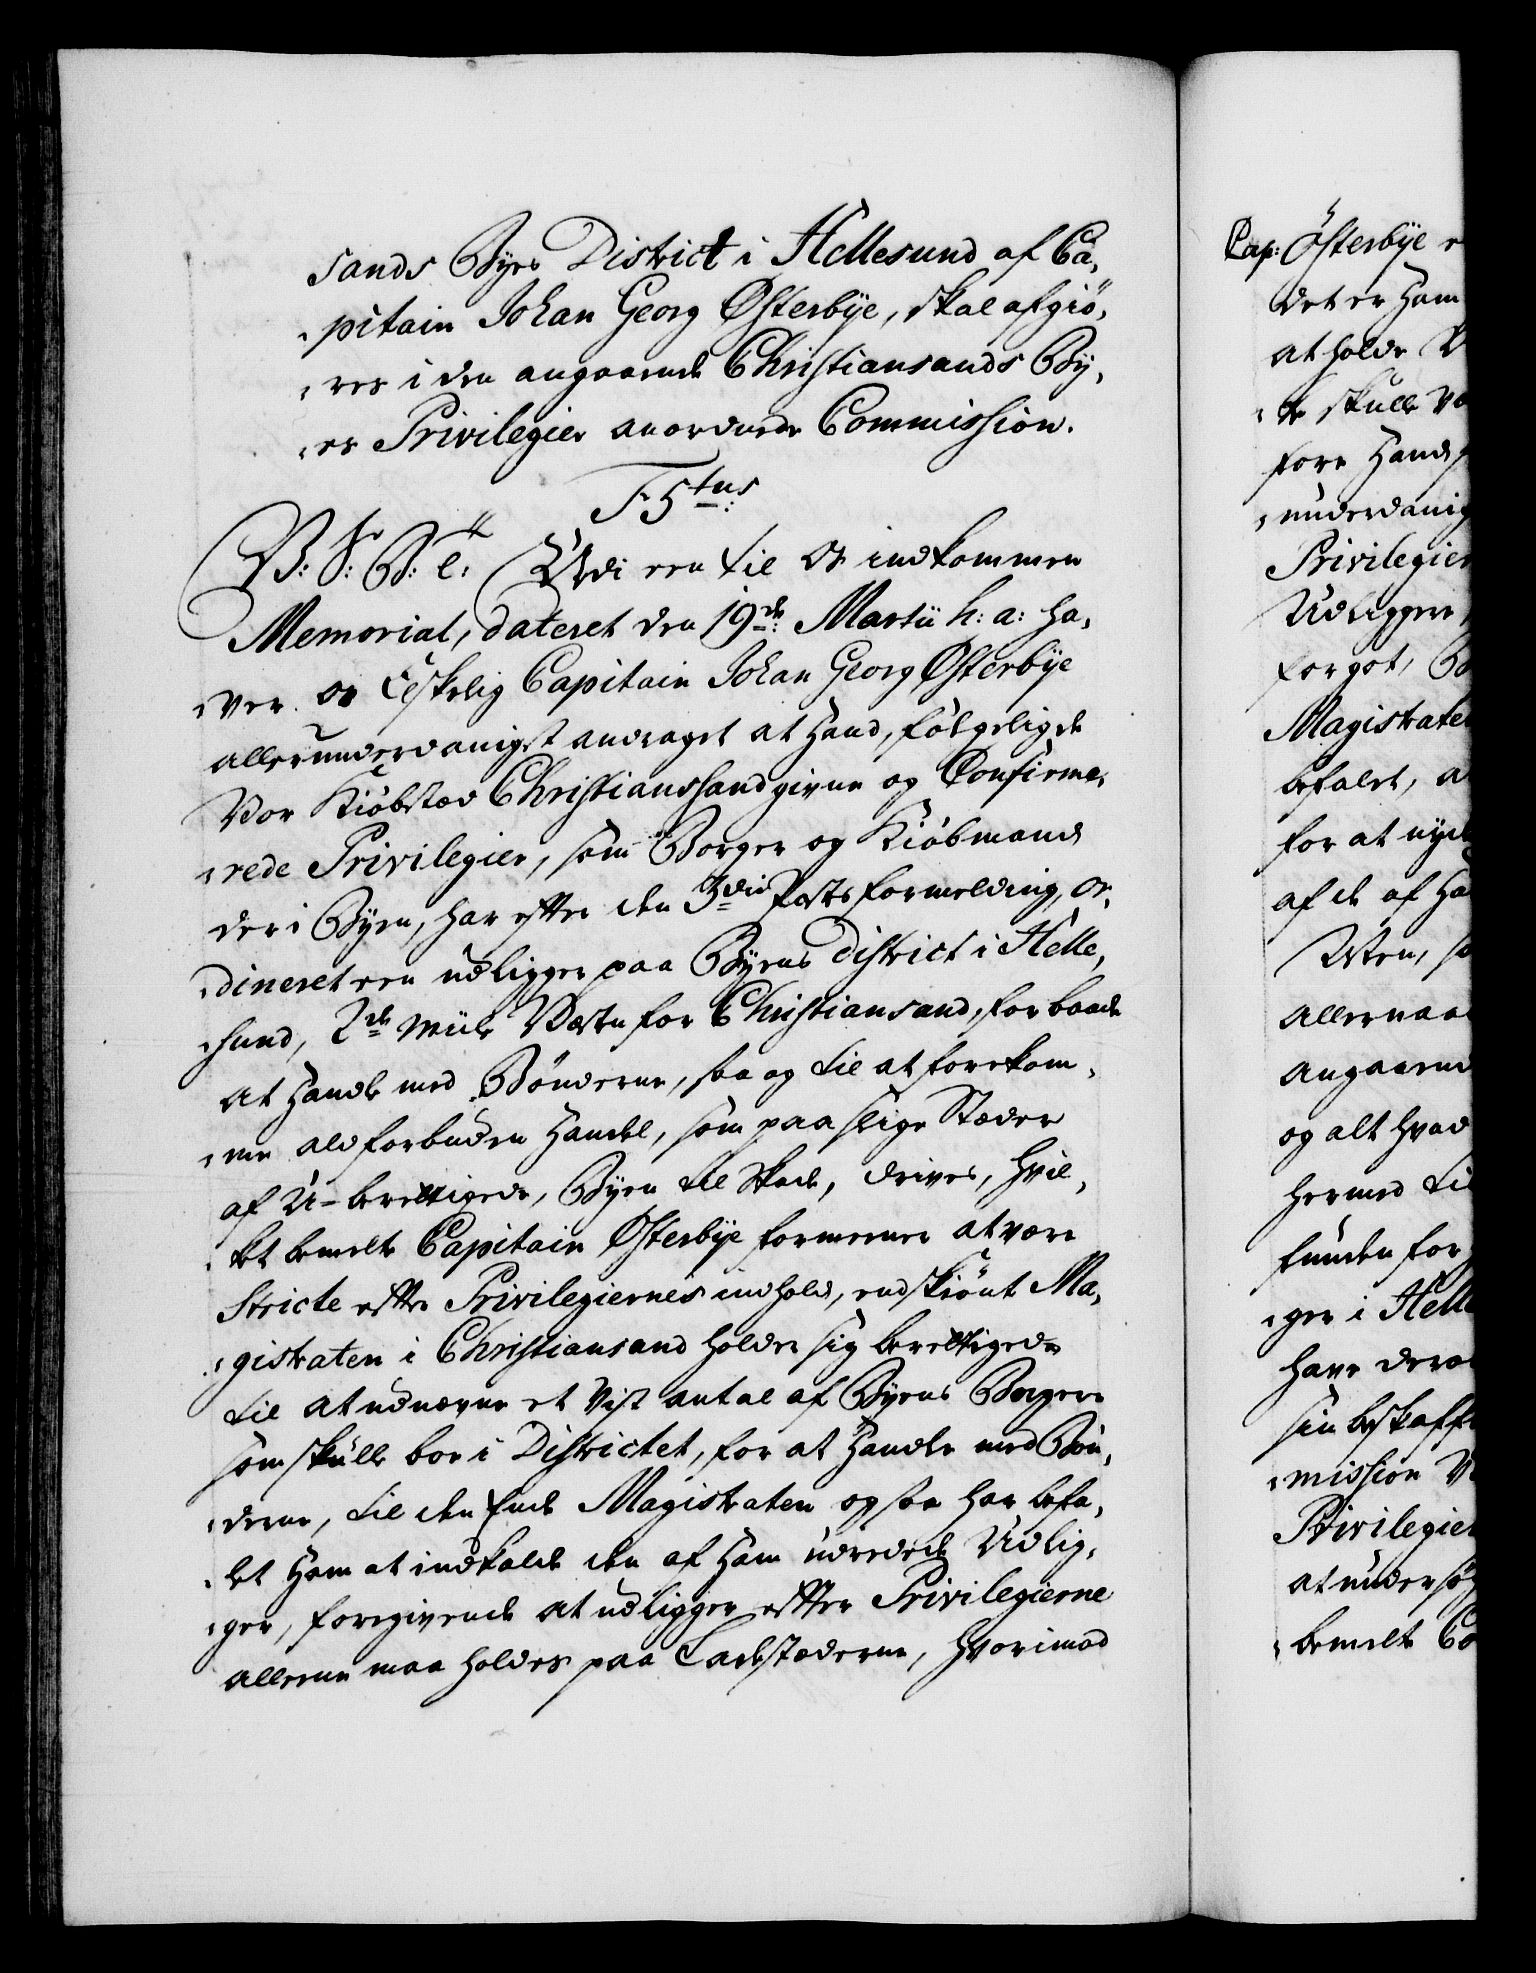 sands Byes District i Hellesund af Ca,
„pitain Johan Georg Østerbye, skal afgiö,
„res i den angaaende Christiansands By,
„es Privilegier anordnede Commission.
F 5tus
V: S: G: T: Udi een til Os indkommen
Memorial, dateret den 19de: Martii h: a: ha,
„ver Os Elskelig Capitain Johan Georg Østerbye
allerunderdanigst andraget at Hand, fölgelig de
Vor Kiöbstæd Christianssand givne og Confirme,
„rede Privilegier, som Borger og Kiöbmand
der i Byen, har efter den 3die Posts formelding, or,
„dineret een udligger paa Byens District i Helle,
„sund, 2de Miile Vesten for Christiansand, for baade
at Handle med Bönderne, saa og til at forekom,
„me ald forbuden Handel, som paa slige Stæder
af U-berettigede, Byen til Skade, drives, hvil,
„ket bemelte Capitain Østerbye formeener at være
Stricte efter Privilegiernes indhold, endskiönt Ma,
„gistraten i Christiansand holder sig berettigede
til at udnævne et Vist antal af Byens Borgere
som skulle boe i Districtet, for at Handle med Bön,
„derne, til den Ende Magistraten og saa har befa,
„let Ham at indkalde den af Ham udredede Udlig,
„ger, foregivende at udligger efter Privilegierne
alleene maa holdes paa Ladestæderne, hvorimod
Cap: Østerbye
det er Ham
at holde
skulle
fore Hands
„underdanig
Privilegier
Udliggere
forgot,
Magistraten
befalet, a
for at nyde
af de af Ha
Allernaa
angaaend
og alt hvad
hermed til
funden for
„ger i Helle
have dera
sin beskaffe
„mission
Privilegier
at undersøg
„bemelte Co